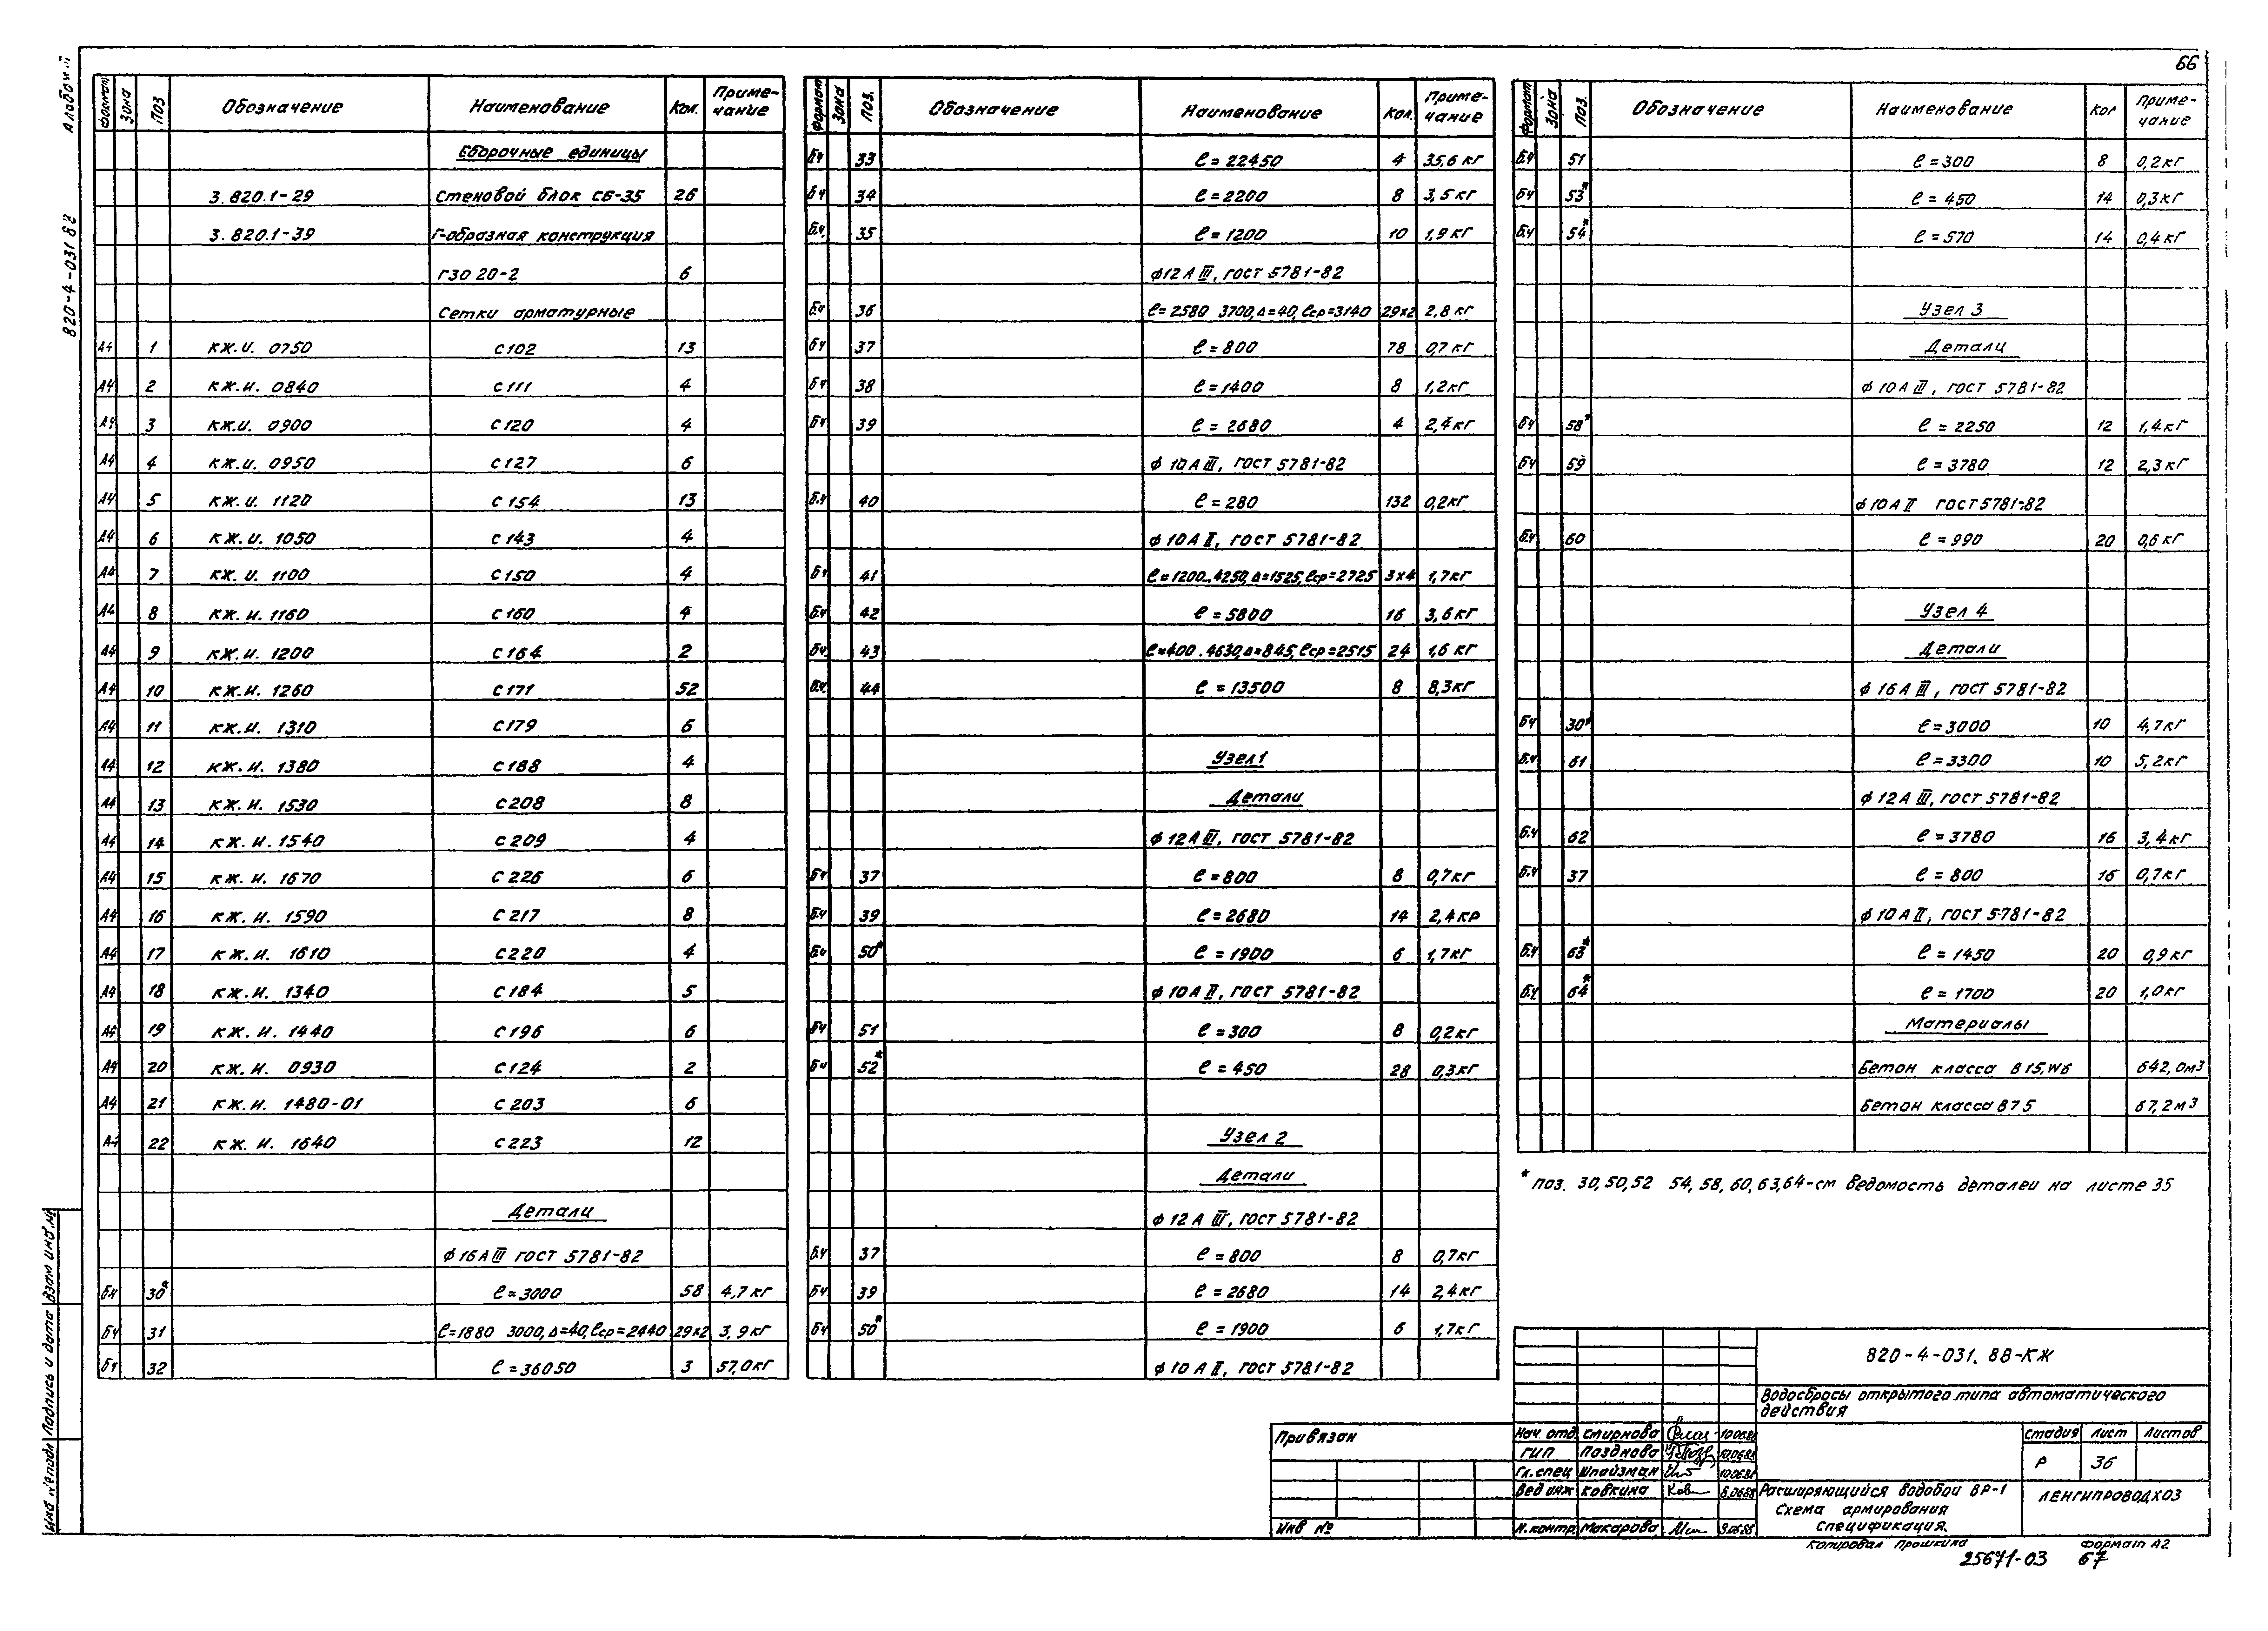 66
Альбом
820-4-031 88
Формат Зона Поз Обозначение Наименование Кол. Примечание
Сборочные единицы
3.820.1-29 Стеновой блок СБ-35 26
3.820.1-39 Г-образная конструкция
Г30 20-2 6
Сетки арматурные
А4 1 КЖ.И. 0750 С102 13
А4 2 КЖ.И. 0840 С111 4
А4 3 КЖ.И. 0900 С120 4
А4 4 КЖ.И. 0950 С127 6
А4 5 КЖ.И. 1120 С154 13
А4 6 КЖ.И. 1050 С143 4
А4 7 КЖ.И. 1100 С150 4
А4 8 КЖ.И. 1160 С160 4
А4 9 КЖ.И. 1200 С164 2
А4 10 КЖ.И. 1260 С171 52
А4 11 КЖ.И. 1310 С179 6
А4 12 КЖ.И. 1380 С188 4
А4 13 КЖ.И. 1530 С208 8
А4 14 КЖ.И. 1540 С209 4
А4 15 КЖ.И. 1670 С226 6
А4 16 КЖ.И. 1590 С217 8
А4 17 КЖ.И. 1610 С220 4
А4 18 КЖ.И. 1340 С184 5
А4 19 КЖ.И. 1440 С196 6
А4 20 КЖ.И. 0930 С124 2
А4 21 КЖ.И. 1480-01 С203 6
А4 22 КЖ.И. 1640 С223 12
Детали
ф16АIII ГОСТ 5781-82
БЧ 30* ℓ=3000 58 4,7кг
БЧ 31 ℓ=1880 3000, Δ=40, ℓср=2440 29х2 3,9кг
БЧ 32 ℓ=36050 3 57,0кг
Формат Зона Поз. Обозначение Наименование Кол. Примечание
БЧ 33 ℓ=22450 4 35,6кг
БЧ 34 ℓ=2200 8 3,5кг
Б.Ч. 35 ℓ=1200 10 1,9кг
ф12АIII, ГОСТ 5781-82
БЧ 36 ℓ=2580 3700, Δ=40, ℓср=3140 29х2 2,8кг
БЧ 37 ℓ=800 78 0,7кг
БЧ 38 ℓ=1400 8 1,2кг
БЧ 39 ℓ=2680 4 2,4кг
ф10АIII, ГОСТ 5781-82
Б.Ч 40 ℓ=280 132 0,2кг
ф10АII, ГОСТ 5781-82
БЧ 41 ℓ=1200..4250, Δ=1525, ℓср=2725 3х4 1,7кг
Б.Ч 42 ℓ=5800 16 3,6кг
БЧ 43 ℓ=400.4630, Δ=845, ℓср=2515 24 1,6кг
Б.Ч. 44 ℓ=13500 8 8,3кг
Узел 1
Детали
ф12АIII, ГОСТ 5781-82
БЧ 37 ℓ=800 8 0,7кг
БЧ 39 ℓ=2680 14 2,4кг
Б.Ч 50* ℓ=1900 6 1,7кг
ф10АII, ГОСТ 5781-82
БЧ 51 ℓ=300 8 0,2кг
БЧ 52* ℓ=450 28 0,3кг
Узел 2
Детали
ф12АIII, ГОСТ 5781-82
Б.Ч 37 ℓ=800 8 0,7кг
БЧ 39 ℓ=2680 14 2,4кг
БЧ 50* ℓ=1900 6 1,7кг
ф10АII, ГОСТ 5781-82
Формат Зона Поз. Обозначение Наименование Кол Примечание
Б.Ч 51 ℓ=300 8 0,2кг
БЧ 53* ℓ=450 14 0,3кг
Б.Ч 54* ℓ=570 14 0,4кг
Узел 3
Детали
ф10АIII, ГОСТ 5781-82
БЧ 58* ℓ=2250 12 1,4кг
БЧ 59 ℓ=3780 12 2,3кг
ф10АII ГОСТ 5781-82
Б.Ч 60 ℓ=990 20 0,6кг
Узел 4
Детали
ф16АIII, ГОСТ 5781-82
БЧ 30* ℓ=3000 10 4,7кг
Б.Ч 61 ℓ=3300 10 5,2кг
ф12АIII, ГОСТ 5781-82
Б.Ч 62 ℓ=3780 16 3,4кг
Б.Ч 37 ℓ=800 16 0,7кг
ф10АII, ГОСТ 5781-82
Б.Ч 63* ℓ=1450 20 0,9кг
Б.Ч 64* ℓ=1700 20 1,0кг
Материалы
Бетон класса В15, W6 642,0м3
Бетон класса В7 5 67,2м3
* Поз. 30, 50, 52 54, 58, 60, 63, 64-см ведомость деталей на листе 35
820-4-031.88-КЖ
Водосбросы открытого типа автоматического
действия
Привязан
Инв №
Нач отд Смирнова 10.06.88
ГИП Позднова 10.06.88
Гл.спец Шпайзман 10.06.88
Вед инж Ковкина 8.06.88
Н.контр. Макарова 9.06.88
Стадия Лист Листов
Р 36
Расширяющийся водобой ВР-1
Схема армирования
Спецификация.
ЛЕНГИПРОВОДХОЗ
Копировал Прошкина Формат А2
25671-03 67
Инв № подл Подпись и дата Взам инв.№